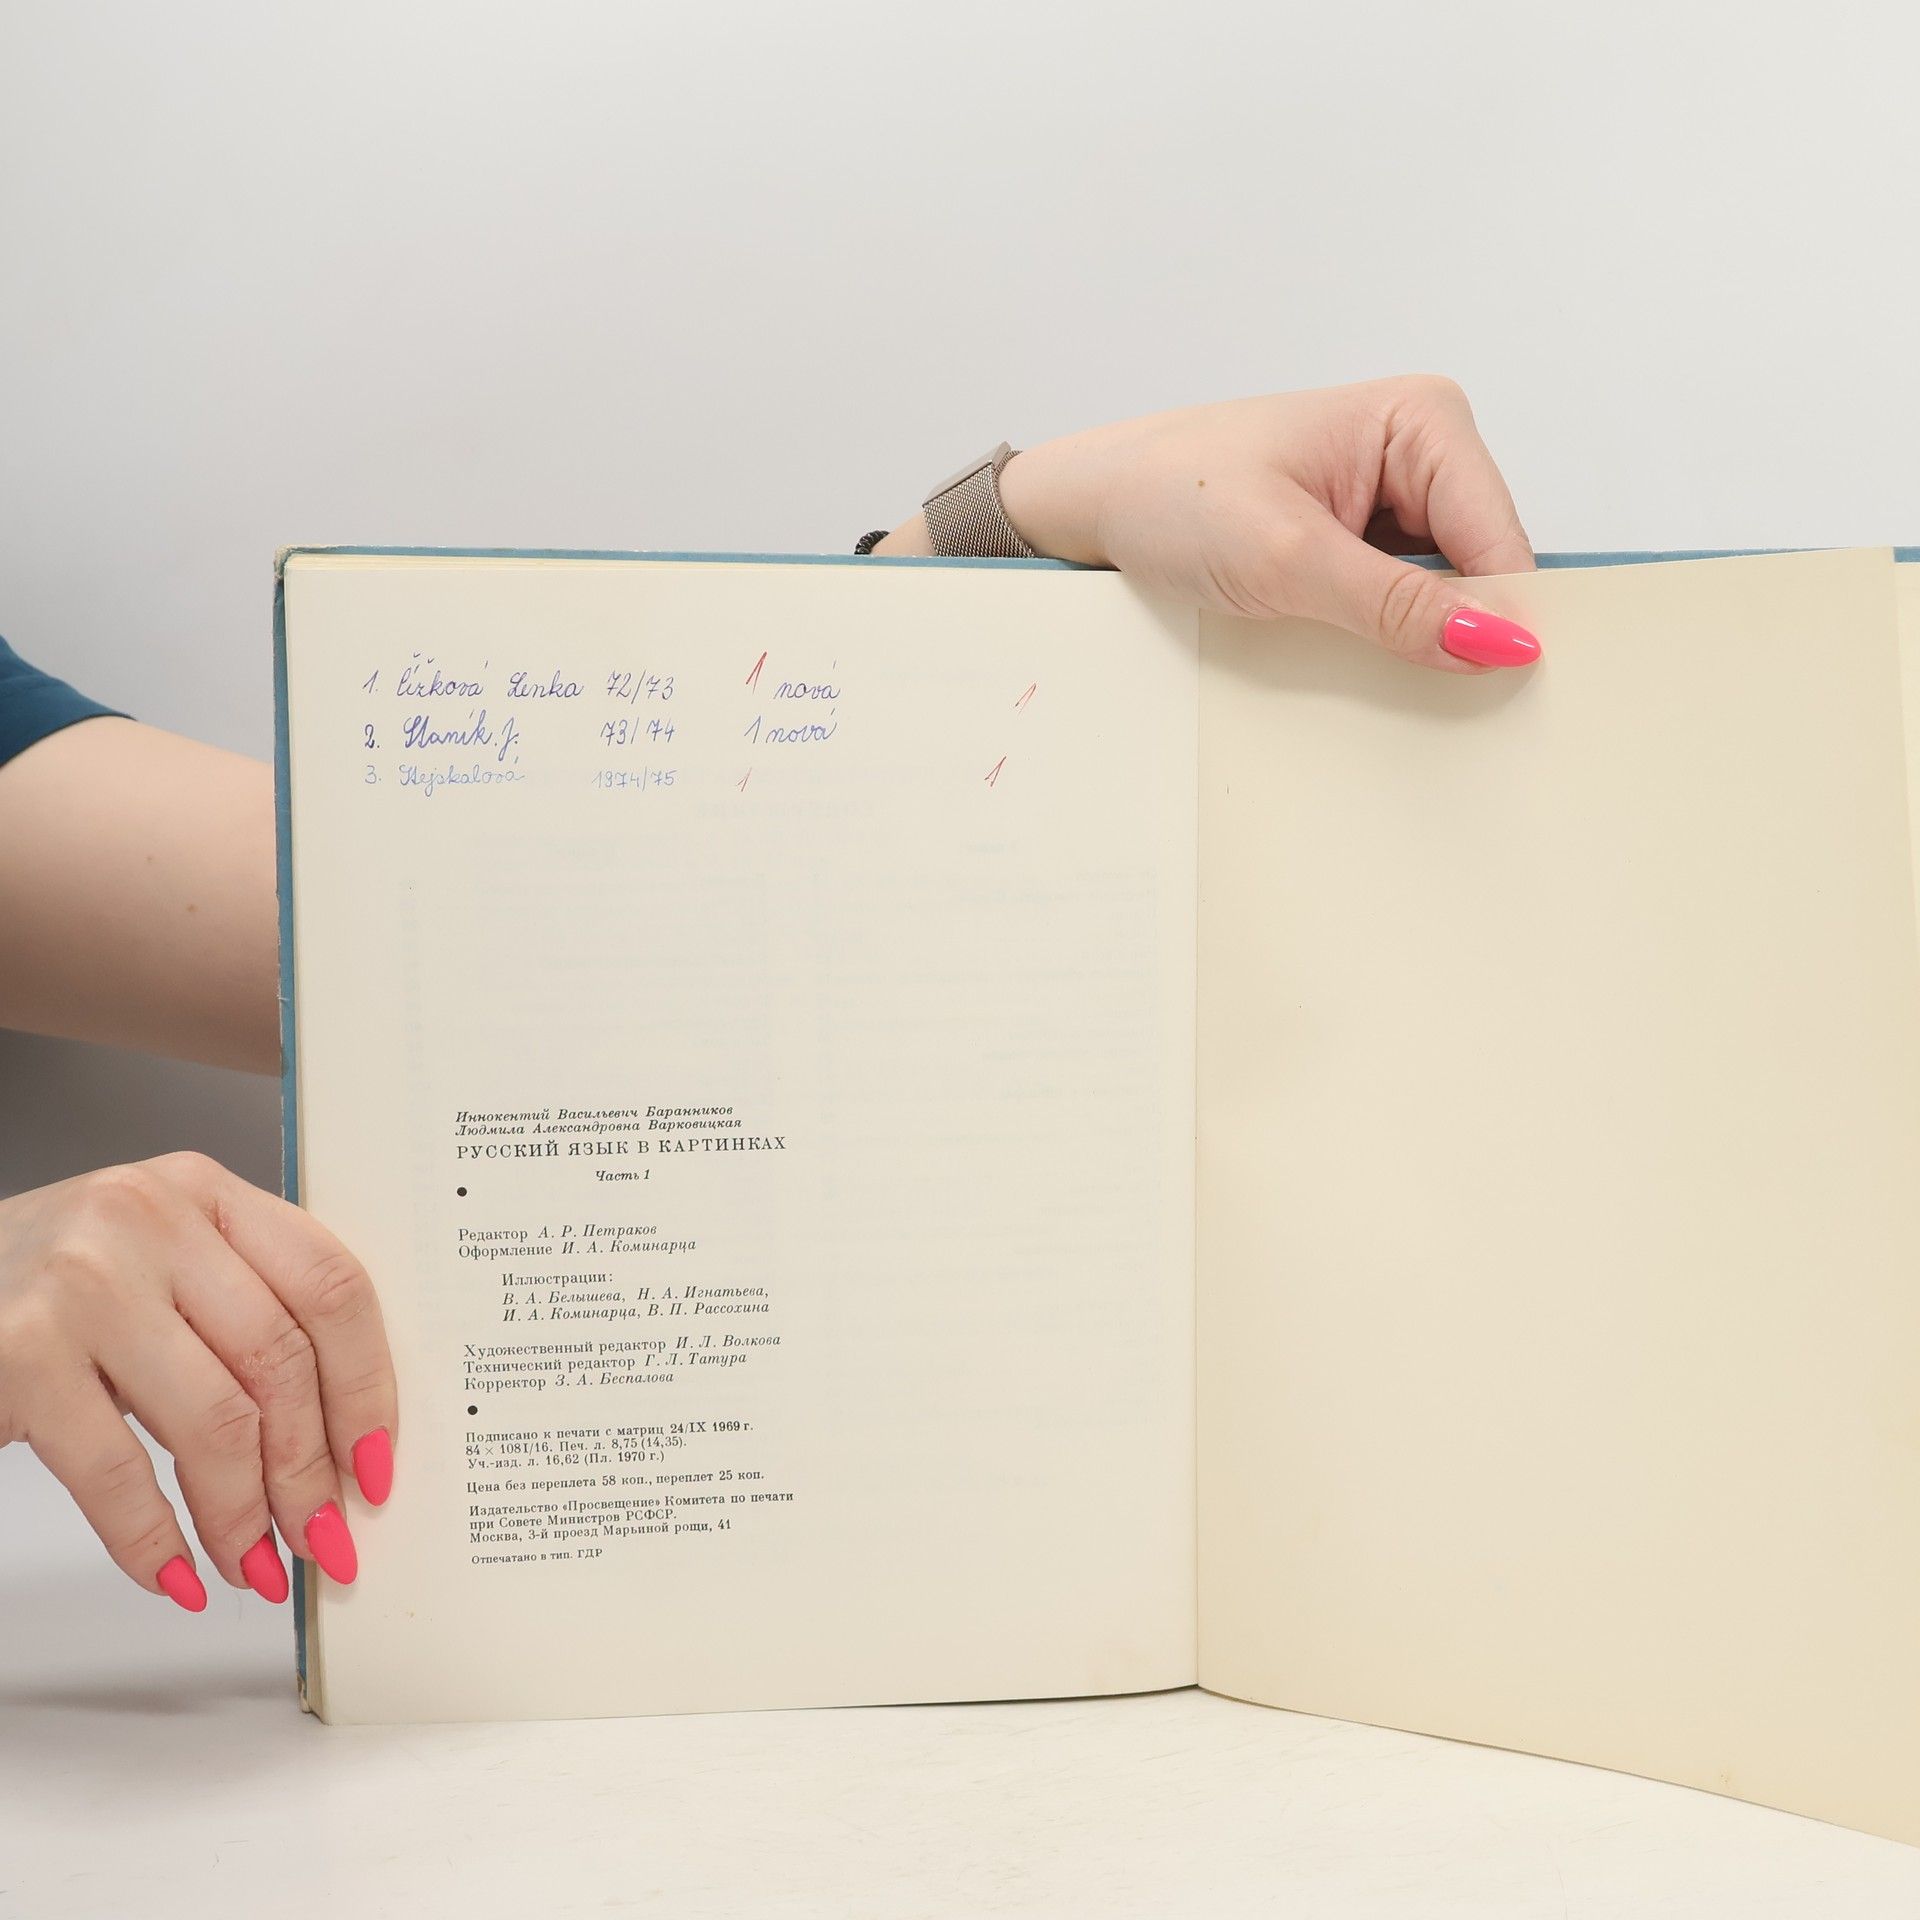 1. Čížková Lenka 72/73 1 nová 1
2. Staník. J. 73/74 1 nová
3. Hejskalová 1974/75 1 1
Иннокентий Васильевич Баранников
Людмила Александровна Варковицкая
РУССКИЙ ЯЗЫК В КАРТИНКАХ
Часть 1
Редактор А. Р. Петраков
Оформление И. А. Коминарца
Иллюстрации:
В. А. Белышева, Н. А. Игнатьева,
И. А. Коминарца, В. П. Рассохина
Художественный редактор И. Л. Волкова
Технический редактор Г. Л. Татура
Корректор З. А. Беспалова
Подписано к печати с матриц 24/IX 1969 г.
84 × 108 1/16. Печ. л. 8,75 (14,35).
Уч.-изд. л. 16,62 (Пл. 1970 г.)
Цена без переплета 58 коп., переплет 25 коп.
Издательство «Просвещение» Комитета по печати
при Совете Министров РСФСР.
Москва, 3-й проезд Марьиной рощи, 41
Отпечатано в тип. ГДР